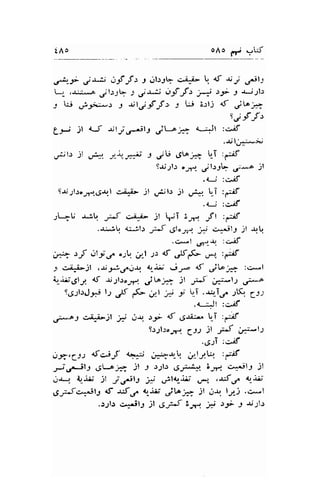 کتاب نهم ۵۸۵ ۴۸۵
واقعی ترند که با حقیقت جاودان و دگرگون نشدنی خویشی
دارنــد و خود نیــز دگرگون نشدنی و جاودانی هستند، یــا
چیزهائی که زادهٔ فنا و دگرگونی‌اند و دستخوش فنا و
دگرگونی؟
گفت: البتــه چیزهــائی واقعــی‌تراند کــه از نــوع
نخستین‌اند.
گفتم: آیا چیزهای فانی و تغییرپذیر بیش از دانش
از هستی جاودانی بهره دارند؟
گفت: نــه.
گفتم: آیا بیش از دانش از حقیقت ابدی‌بهره‌دارند؟
گفت: نــه.
گفتم: اگر بهرهٔ آنها از حقیقت کمتر باشد ناچــار
باید از واقعیت نیز بهره‌ای کمتر داشته باشند.
گفت: بدیهی است.
گفتم: پس حکم‌کلی که در این باره می‌توان کرد چنین
است: چیزهائی که صرف تغذیه بدن‌می‌شوند، ازحقیقت و
هستی راستین کمتر از چیزهائی بهره‌دارند که برای‌تغذیهٔ
روح بکار می‌آیند. آیا تو نیز این حکم کلی را قبول‌داری؟
گفت: البتــه.
گفتم: آیا معتقدی که خود بدن نیز ازحقیقت وهستی
راستین کمتر از روح بهره‌دارد؟
گفت: آری.
گفتم: بنابراین بایدچنین نتیجه گرفت‌که روح،چون
از واقعیت بهرهٔ بیشتری دارد و از چیزهــای واقــعی‌تــر
تغذیه می‌کند، پس تغذیه‌اش نیز واقعی‌تر از تغذیهٔ بــدن
است. زیرا بدن از چیزهائی تغذیه می‌کند که واقعیت‌کمتری
دارند و خود نیز بهرهٔ کمتری از واقعیت دارد.